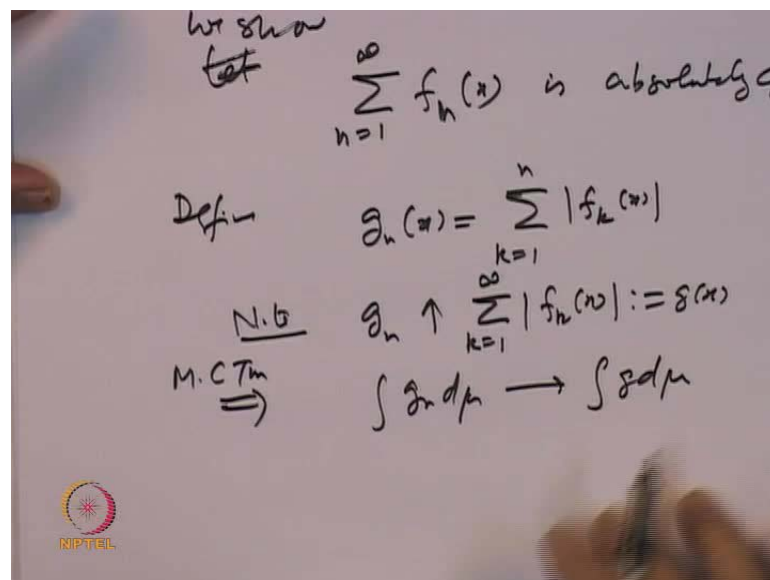 we show
Let
∞
∑ f_n(x) is absolutely
n=1
Defin g_n(x) = ∑_{k=1}^{n} |f_k(x)|
N.B g_n ↑ ∑_{k=1}^{∞} |f_k(x)| := g(x)
M.C Tm ⇒ ∫ g_n dμ → ∫ g dμ
NPTEL